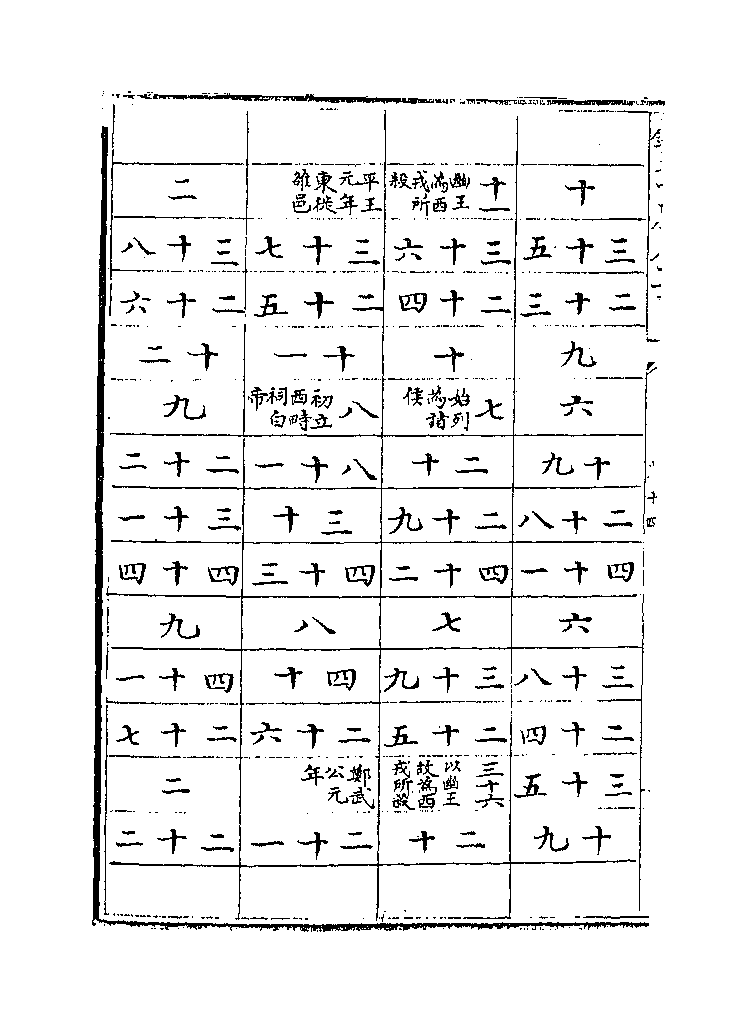 十
三十五
二十三
九
六
十九
二十八
四十一
六
三十八
二十四
三十五
十九
十一幽王為西戎所殺
三十六
二十四
十
七始列為諸侯
二十
二十九
四十二
七
三十九
二十五
三十六以幽王故為西戎所殺
二十
平王元年東徙雒邑
三十七
二十五
十一
八初立西畤祠白帝
八十一
三十
四十三
八
四十
二十六
鄭武公元年
二十一
二
三十八
二十六
十二
九
二十二
三十一
四十四
九
四十一
二十七
二
二十二